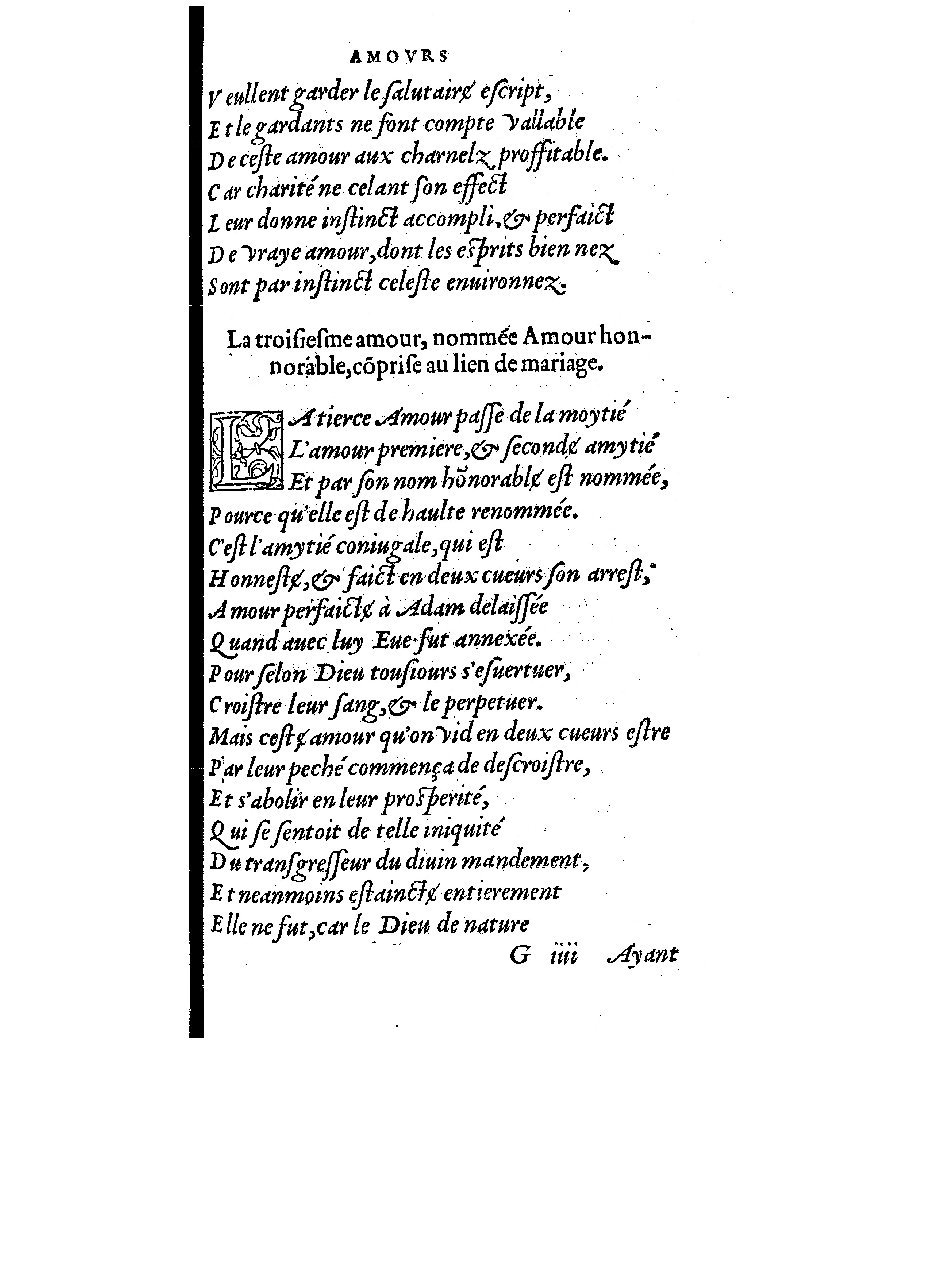 AMOVRS
Veullent garder le ſalutairɇ eſcript,
Et le gardants ne font compte vallable
De ceſte amour aux charnelz proffitable.
Car charité ne celant ſon effect
Leur donne inſtinct accompli, & perfaict
De vraye amour, dont les eſprits bien nez
Sont par inſtinct celeſte enuironnez.
La troiſieſme amour, nommée Amour hon-
norable, cõpriſe au lien de mariage.
LA tierce Amour paſſe de la moytié
L'amour premiere, & ſecondɇ amytié
Et par ſon nom hõnorablɇ eſt nommée,
Pource qu'elle eſt de haulte renommée.
C'eſt l'amytié coniugale, qui eſt
Honneſtɇ, & faict en deux cueurs ſon arreſt,
Amour perfaictɇ à Adam delaiſſée
Quand auec luy Eue fut annexée.
Pour ſelon Dieu touſiours s'eſuertuer,
Croiſtre leur ſang, & le perpetuer.
Mais ceſtɇ amour qu'on vid en deux cueurs eſtre
Par leur peché commença de deſcroiſtre,
Et s'abolir en leur proſperité,
Qui ſe ſentoit de telle iniquité
Du tranſgreſſeur du diuin mandement,
Et neanmoins eſtainctɇ entierement
Elle ne fut, car le Dieu de nature
G iiii Ayant